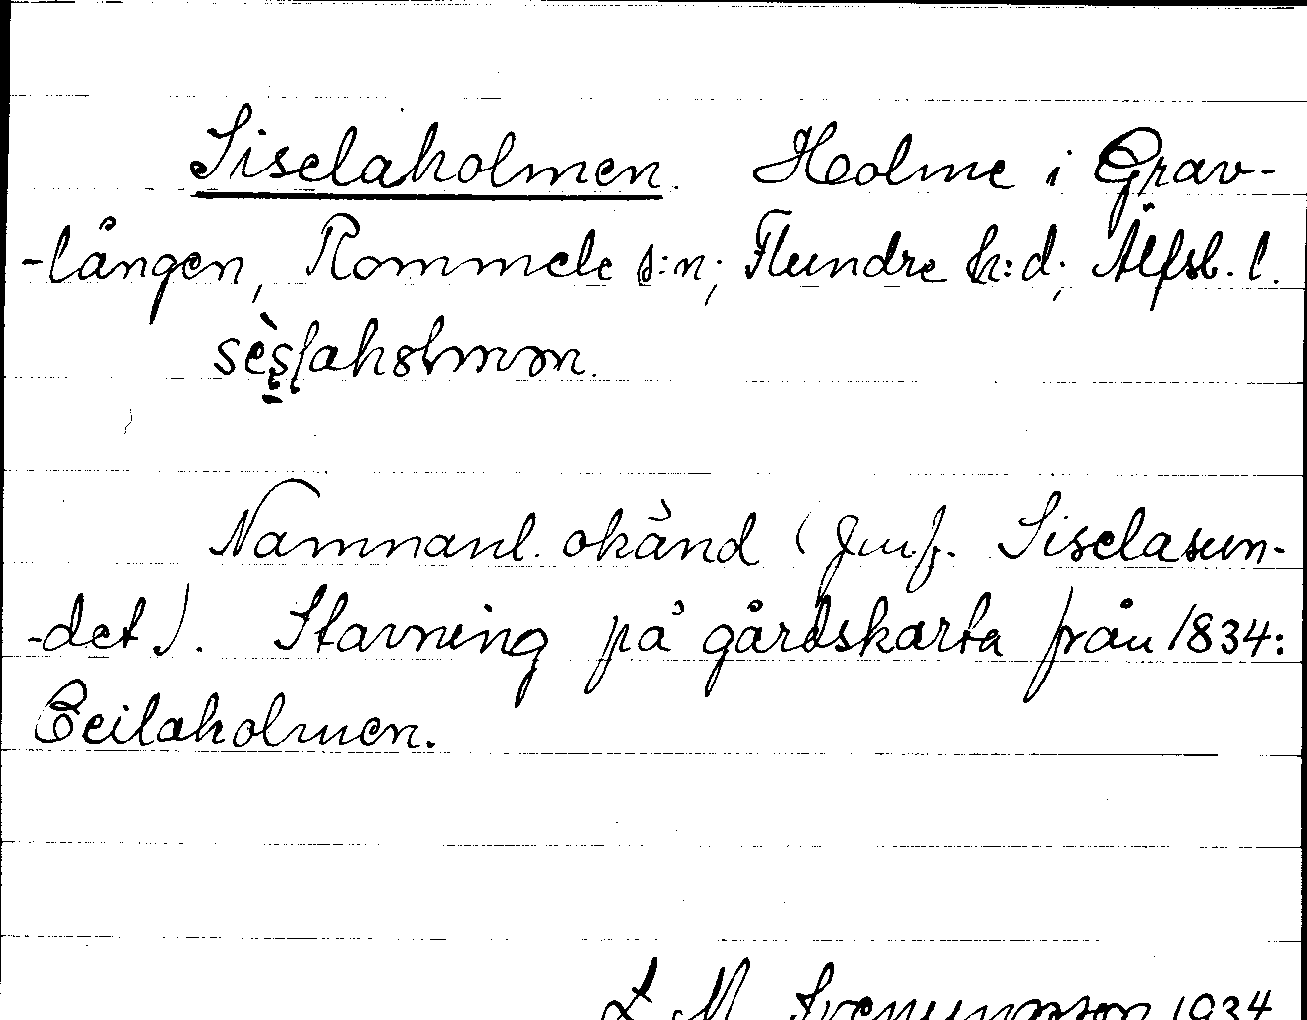 Siselaholmen. Holme i Grav-
-lången, Rommele s:n; Flundre h:d; Älfsb. l.
Namnanl. okänd (Jmf. Siselasun-
-det). Stavning på gårdskarta från 1834:
Ceilaholmen.
1934